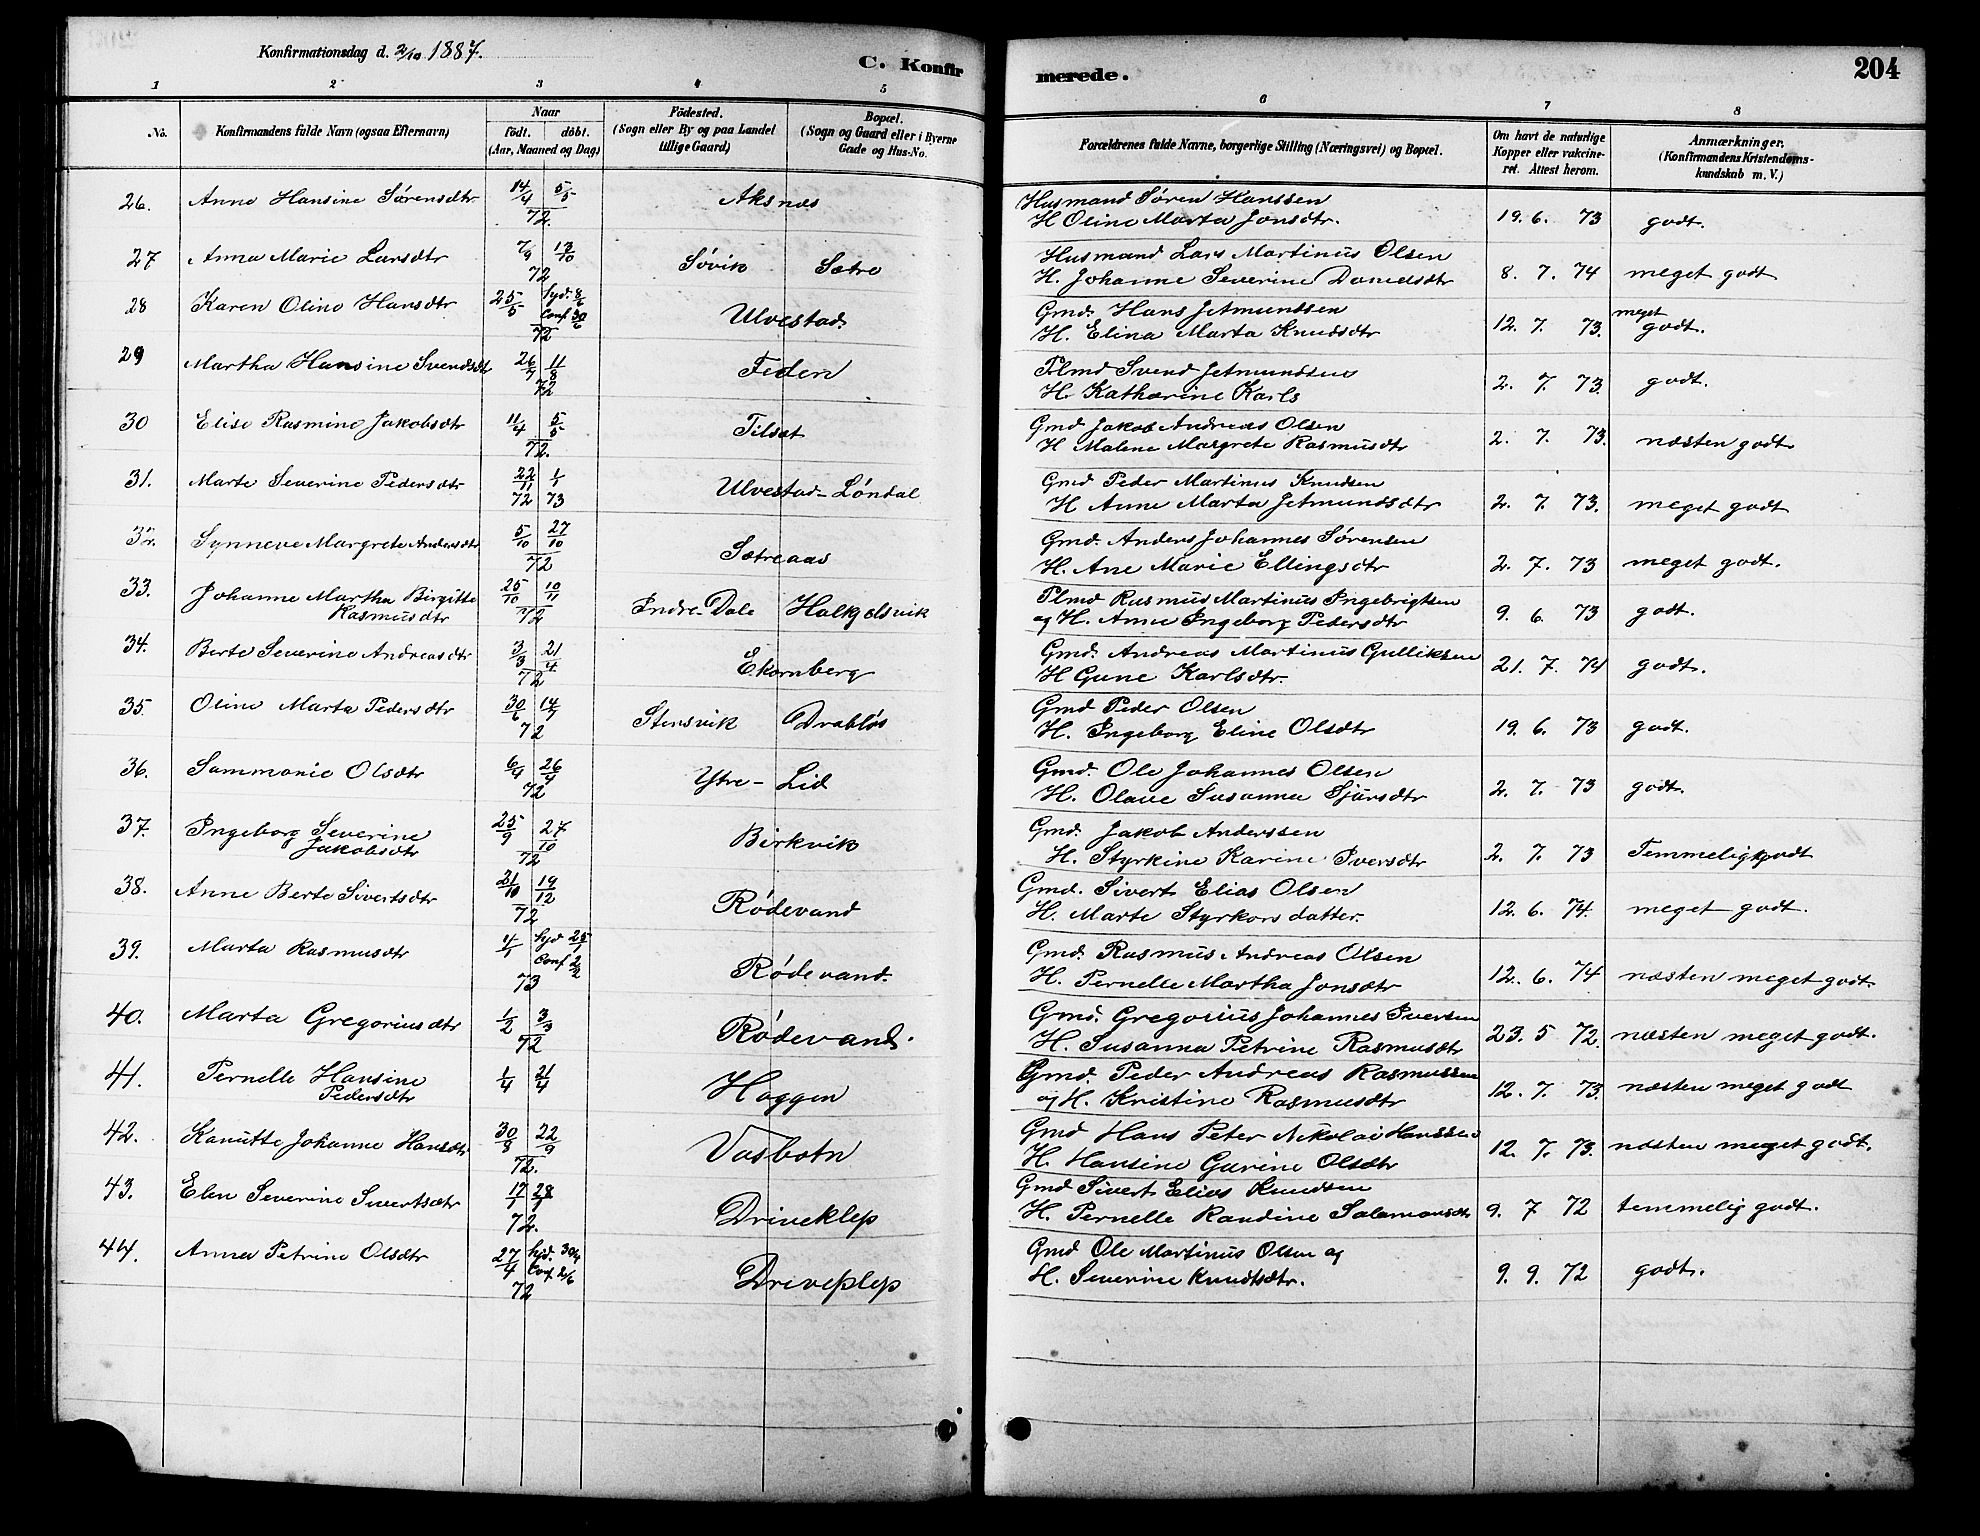 Konfirmationsdag d. 2/10 1887.
C. Konfirmerede.
204
1 2 3 4 5 6 7 8
No.
Konfirmandens fulde Navn (ogsaa Efternavn)
Naar
födt. döbt.
(Aar, Maaned og Dag)
Födested.
(Sogn eller By og paa Landet
tillige Gaard)
Bopæl.
(Sogn og Gaard eller i Byerne
Gade og Hus-No.
Forældrenes fulde Navne, borgerlige Stilling (Næringsvei) og Bopæl.
Om havt de naturlige
Kopper eller vakcine-
ret. Attest herom.
Anmærkninger.
(Konfirmandens Kristendoms-
kundskab m. V.)
26. Anne Hansine Sørensdtr 14/4 5/5 72. Aksnæs Husmand Søren Hanssen
H Oline Marta Jonsdtr. 19. 6. 73 godt.
27 Anna Marie Larsdtr 7/9 13/10 72 Søvik Sætre Husmand Lars Martinus Olsen
H. Johanne Severine Danielsdtr 8. 7. 74 meget godt
28 Karen Oline Hansdtr 25/5 hjd. 8/6 Conf 30/6 72 Ulvestad Gmd. Hans Jetmundsen
H. Elina Marta Knudsdtr 12. 7. 73. meget godt.
29 Martha Hansine Svendsdtr 26/7 11/8 72 Feden Plmd Svend Jetmundsen
H. Katharine Karls 2. 7. 73. godt.
30 Elise Rasmine Jakobsdtr 11/4 5/5 72. Tilset Gmd Jakob Andreas Olsen
H Malene Margrete Rasmusdtr 2. 7. 73. næsten godt
31. Marte Severine Pedersdtr 22/11 72 1/1 73 Ulvestad-Løndal Gmd Peder Martinus Knudsen
H Anne Marta Jetmundsdtr 2. 7. 73. meget godt
32. Synneve Margrete Andersdtr 5/10 27/10 72 Sætreaas Gmd. Anders Johannes Sørensen
H. Ane Marie Ellingsdtr 2. 7. 73 meget godt.
33. Johanne Martha Birgitte
Rasmusdtr 25/10 10/11 72 Indre-Dale Halkjelsvik Plmd Rasmus Martinus Ingebrigtsen
og H. Anne Ingeborg Pedersdtr 9. 6. 73 godt.
34. Berte Severine Andreasdtr 3/3 21/4 72 Ekornberg Gmd. Andreas Martinus Gulliksen
H Gune Karlsdtr. 21. 7. 74 godt.
35. Oline Marta Pedersdtr 30/6 14/7 72 Stensvik Drabløs Gmd Peder Olsen
H. Ingeborg Eline Olsdtr 19. 6. 73 godt.
36. Sammonie Olsdtr 6/4 26/4 72 Ytre-Lid Gmd. Ole Johannes Olsen
H. Olave Susanna Sjursdtr 2. 7. 73 godt.
37. Ingeborg Severine
Jakobsdtr 25/9 27/10 72 Birkvik Gmd. Jakob Anderssen
H. Styrkine Karine Iversdtr 2. 7. 73 Temmelig godt
38. Anne Berte Sivertsdtr 21/10 19/12 72 Rødevand Gmd. Sivert Elias Olsen
H. Marte Styrkors datter. 12. 6. 74. meget godt.
39. Marta Rasmusdtr 4/1 hjd 25/1 Conf 2/2 73 Rødevand. Gmd. Rasmus Andreas Olsen
H. Pernelle Martha Jonsdtr 12. 6. 74 næsten meget godt.
40. Marta Gregoriusdtr 1/2 3/3 72 Rødevand. Gmd. Gregorius Johannes Iversen
H. Susanna Petrine Rasmusdtr 23. 5 72. næsten meget godt.
41. Pernelle Hansine
Pedersdtr 1/4 21/4 Haggen Gmd. Peder Andreas Rasmussen
og H. Kristine Rasmusdtr 12. 7. 73. næsten meget godt
42. Kanutte Johanne Hansdtr 30/8 22/9 72. Vasbotn Gmd Hans Peter Nikolai Hanssen
H. Hansine Gurine Olsdtr 12. 7. 73. næsten meget godt.
43. Elen Severine Sivertsdtr 17/1 28/1 72. Driveklep Gmd Sivert Elias Knudsen
H. Pernelle Randine Salamonsdtr 9. 7 72 temmelig godt.
44. Anna Petrine Olsdtr 27/4 hjd. 30/4 Conf 2/6 72 Driveplep Gmd Ole Martinus Olsen og
H. Severine Knudtsdtr. 9. 9. 72 godt.